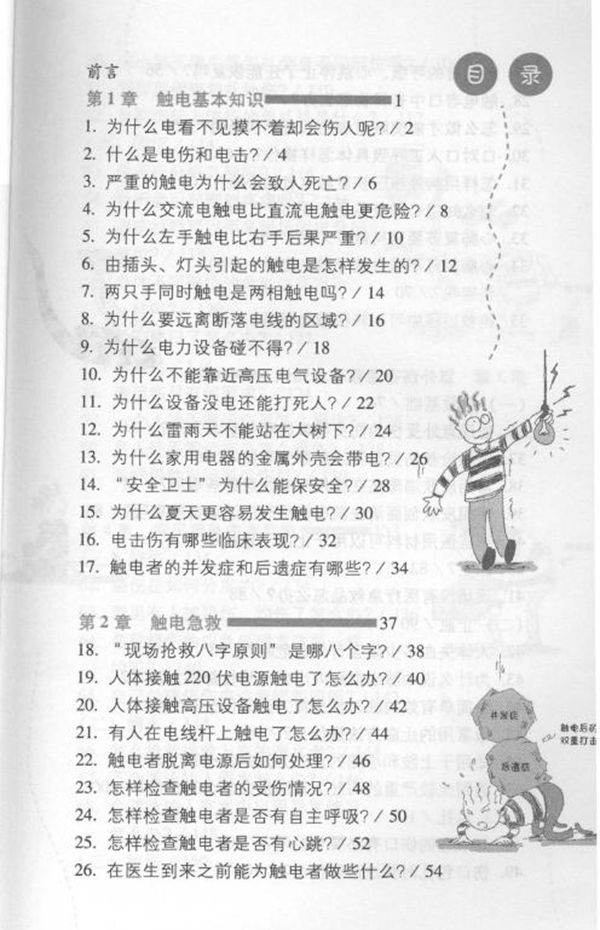 目录
前言
第1章 触电基本知识 1
1. 为什么电看不见摸不着却会伤人呢?/2
2. 什么是电伤和电击?/4
3. 严重的触电为什么会致人死亡?/6
4. 为什么交流电触电比直流电触电更危险?/8
5. 为什么左手触电比右手后果严重?/10
6. 由插头、灯头引起的触电是怎样发生的?/12
7. 两只手同时触电是两相触电吗?/14
8. 为什么要远离断落电线的区域?/16
9. 为什么电力设备碰不得?/18
10. 为什么不能靠近高压电气设备?/20
11. 为什么设备没电还能打死人?/22
12. 为什么雷雨天不能站在大树下?/24
13. 为什么家用电器的金属外壳会带电?/26
14. “安全卫士”为什么能保安全?/28
15. 为什么夏天更容易发生触电?/30
16. 电击伤有哪些临床表现?/32
17. 触电者的并发症和后遗症有哪些?/34
第2章 触电急救 37
18. “现场抢救八字原则”是哪八个字?/38
19. 人体接触220伏电源触电了怎么办?/40
20. 人体接触高压设备触电了怎么办?/42
21. 有人在电线杆上触电了怎么办?/44
22. 触电者脱离电源后如何处理?/46
23. 怎样检查触电者的受伤情况?/48
24. 怎样检查触电者是否有自主呼吸?/50
25. 怎样检查触电者是否有心跳?/52
26. 在医生到来之前能为触电者做些什么?/54
并发症
后遗症
触电后的
双重打击